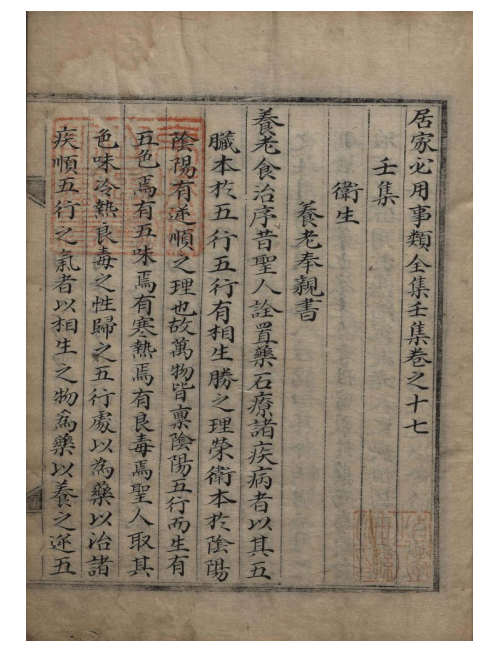 居家必用事類全集壬集卷之十七
壬集
衛生
養老奉親書
養老食治序昔聖人詮置藥石療諸疾病者以其五
臟本於五行五行有相生勝之理榮衛本於陰陽
陰陽有逆順之理也故萬物皆禀陰陽五行而生有
五色焉有五味焉有寒熱焉有良毒焉聖人取其
色味冷熱良毒之性歸之五行處以為藥以治諸
疾順五行之氣者以相生之物為藥以養之逆五